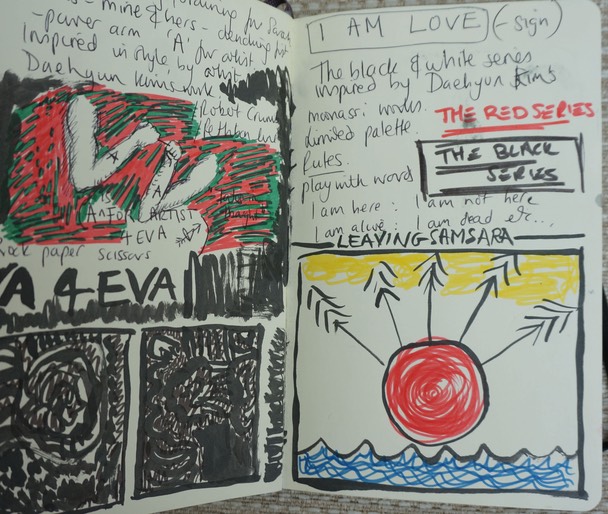 - mine & hers - clenching fist
- power arm 'A' for artist
Inspired in style by artist
Daehyun Kim's work
Robert Crumb
A FOR ARTIST
4 EVA
rock paper scissors
A 4 EVA
I AM LOVE (- sign)
The black & white series
inspired by Daehyun Kim's
moonassi works.
THE RED SERIES
limited palette.
Rules.
THE BLACK
SERIES
play with word
I am here : I am not here
I am alive : I am dead etc...
LEAVING SAMSARA